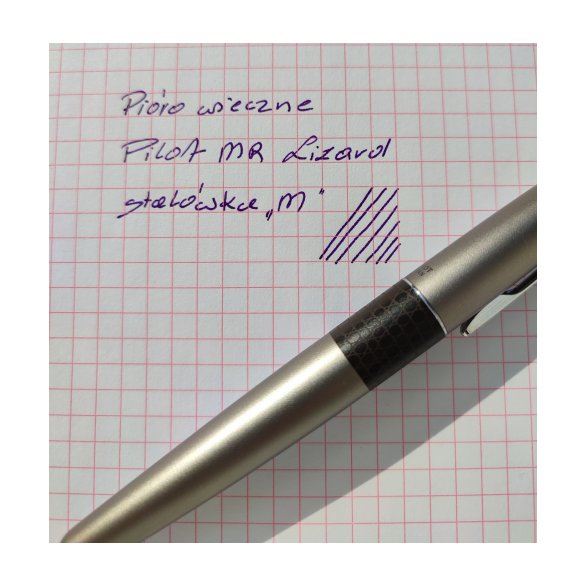 Pióro wieczne
Pilot MR Lizard
stalówka „M"